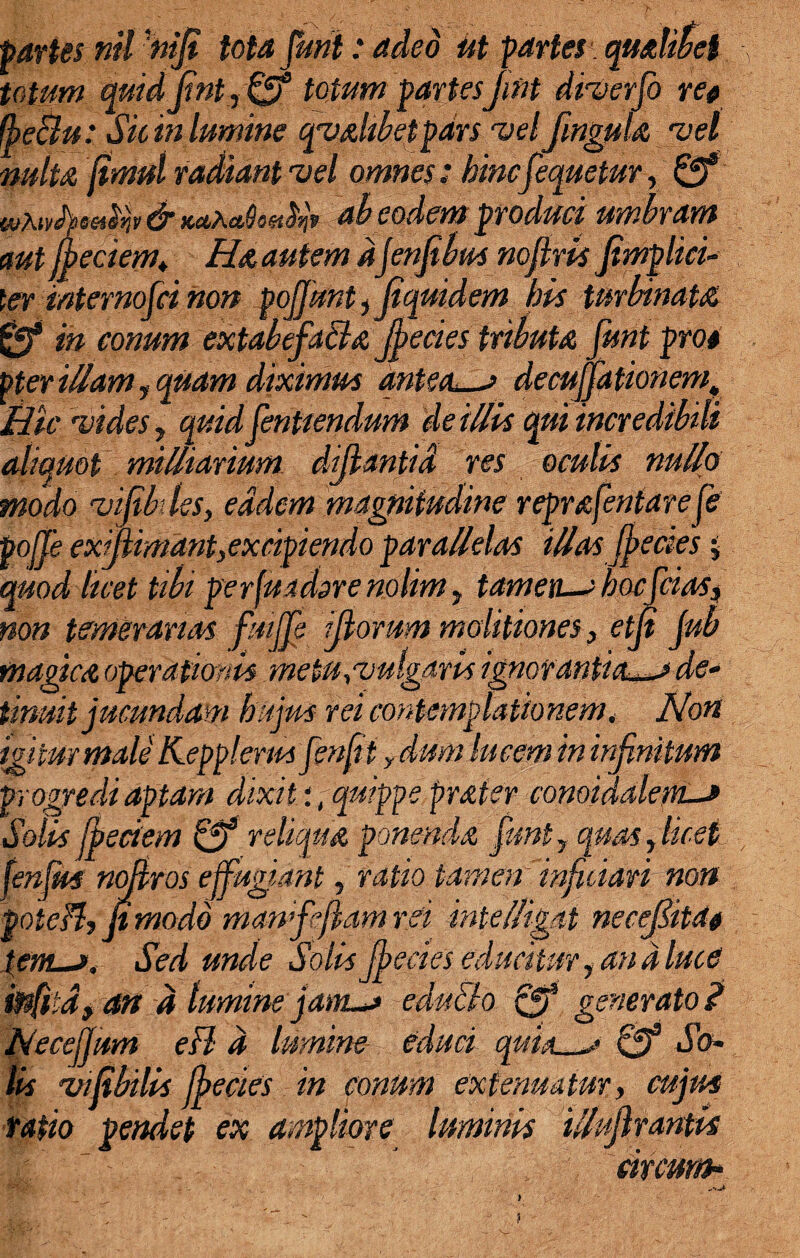 partes nil niſi tota ſunt : adeò ut partes quælibet
totum quid ſint, & totum partes ſint diverſo re⸗
ſpectu : Sic in lumine qvælibet pars vel ſingulæ vel
multæ ſimul radiant vel omnes : hinc ſequetur, &
& ab eodem produci umbram
aut ſpeciem. Hæ autem à ſenſibus noſtris ſimplici-
ter internoſci non poſſunt, ſiquidem his turbinatæ
& in conum extabefactæ ſpecies tributæ ſunt pro⸗
pter illam, quam diximus antea decuſſationem.
Hic vides, quid ſentiendum de illis qui incredibili
aliquot milliarium diſtantiâ res oculis nullo
modo viſibiles, eâdem magnitudine repræſentare ſe
poſſe exiſtimant, excipiendo parallelas illas ſpecies ;
quod licet tibi perſuadere nolim, tamen hoc ſcias,
non temerarias fuiſſe iſtorum molitiones, etſi ſub
magicæ operationis metu, vulgaris ignorantia de-
tinuit jucundam hujus rei contemplationem. Non
igitur malè Kepplerus ſenſit, dum lucem in infinitum
progredi aptam dixit : quippe præter conoidalem
Solis ſpeciem & reliquæ ponendæ ſunt, quas, licet
ſenſus noſtros effugiant, ratio tamen inficiari non
poteſt, ſi modò manifeſtam rei intelligat neceſſita⸗
tem. Sed unde Solis ſpecies educitur, an à luce
inſitâ, an à lumine jam educto & generato ?
Neceſſum eſt à lumine educi quia & So-
lis viſibilis ſpecies in conum extenuatur, cujus
ratio pendet ex ampliore luminis illuſtrantis
circum-